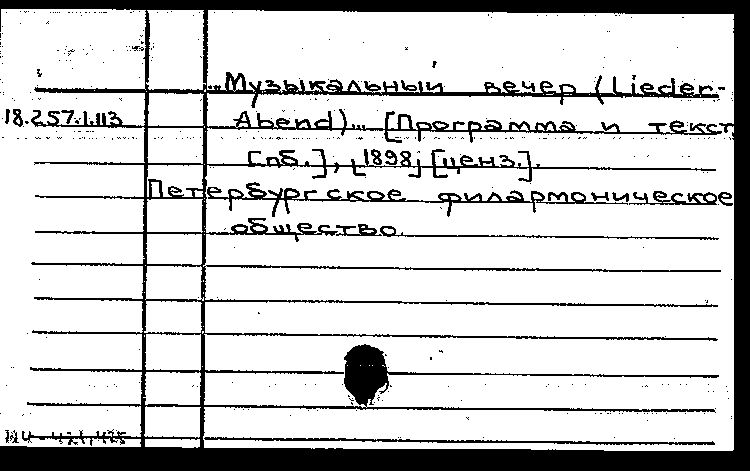 „Музыкальный вечер (Lieder-
18.257.1.113 Abend)... [Программа и текст
Спб.], [1898] [ценз.].
Петербургское филармоническое
общество.